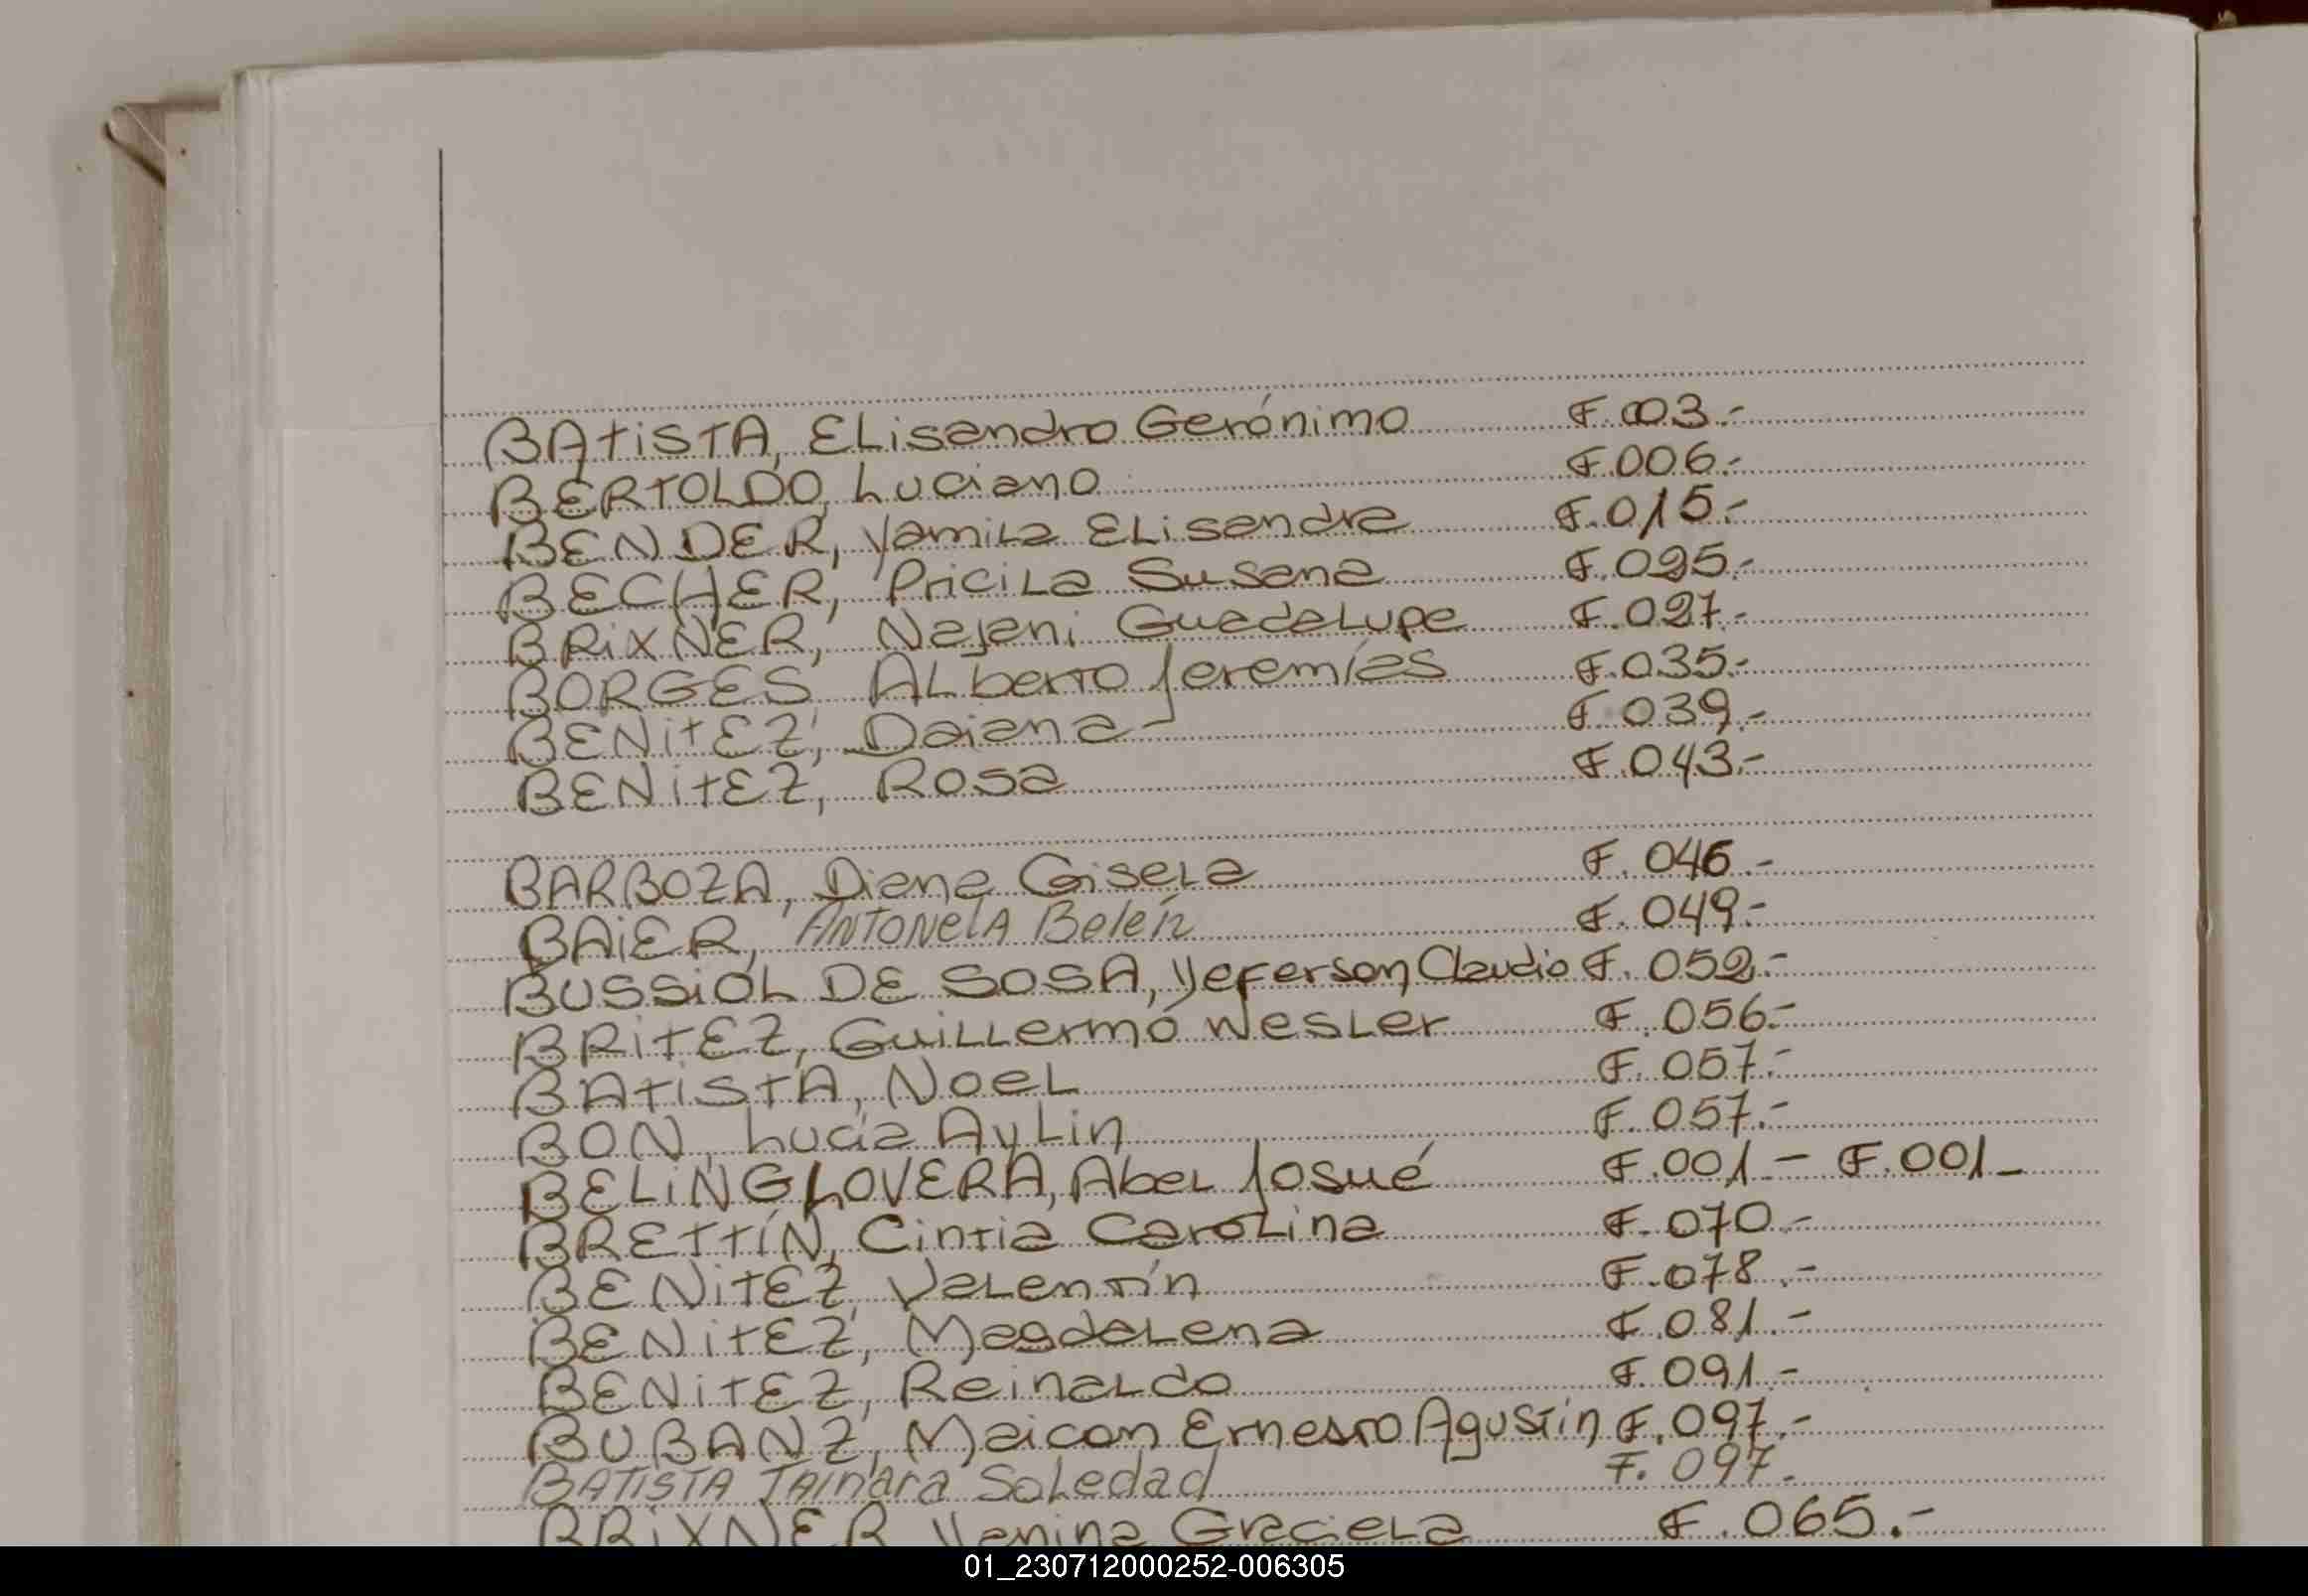 BATISTA, ELisandro Gerónimo F.003.-
BERTOLDO, Luciano F.006.-
BENDER, Yamila ELisandra F.015.-
BECHER, PriciLa Susana F.025.-
BRIXNER, Najani GuadaLupe F.027.-
BORGES, ALberto Jeremías F.035.-
BENITEZ, Daiana F.039.-
BENITEZ, Rosa F.043.-
BARBOZA, Diana GiseLa F.046.-
BAIER, ANTONelA Belén F.049.-
BUSSIOL DE SOSA, Yeferson Claudio F.052.-
BRITEZ, GuiLLermo WesLer F.056.-
BATISTA, NoeL F.057.-
BON, Lucía AyLin F.057.-
BELING LOVERA, AbeL Josué F.001 - F.001-
BRETTÍN, Cintia CaroLina F.070.-
BENITEZ, VaLentín F.078.-
BENITEZ, MagdaLena F.081.-
BENITEZ, ReinaLdo F.091.-
BUBANZ, Maicon Ernesto Agustín F.097.-
BATISTA TAInara SoLedad F.097.
BRIXNER Yanina GracieLa F.065.-
01_230712000252-006305